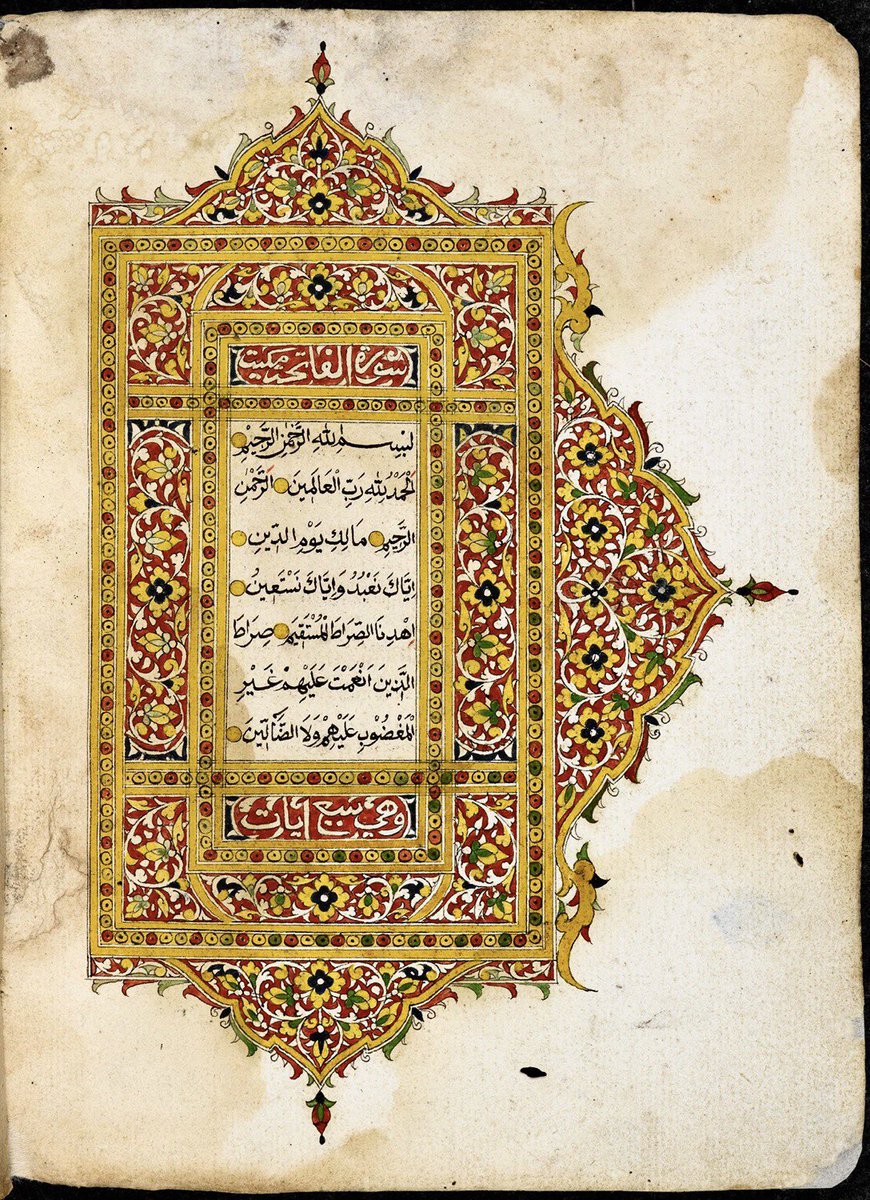 سورة الفاتحة مكية
بِسْمِ اللهِ الرَّحْمٰنِ الرَّحِيْمِ
اَلْحَمْدُ لِلّٰهِ رَبِّ الْعَالَمِينَ الرَّحْمٰنِ
الرَّحِيْمِ مَالِكِ يَوْمِ الدِّيْنِ
اِيَّاكَ نَعْبُدُ وَاِيَّاكَ نَسْتَعِيْنُ
اِهْدِنَا الصِّرَاطَ الْمُسْتَقِيْمَ صِرَاطَ
الَّذِيْنَ اَنْعَمْتَ عَلَيْهِمْ غَيْرِ
الْمَغْضُوْبِ عَلَيْهِمْ وَلَا الضَّالِّيْنَ
وهي سبع ايات